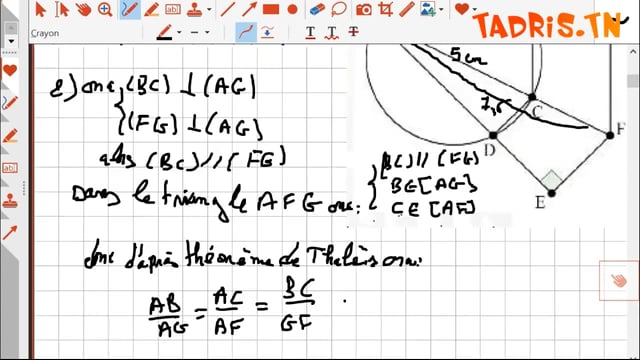 TADRIS.TN
Crayon
5 cm
7,5
C
F
D
E
2) on a (BC) ⊥ (AG)
(FG) ⊥ (AG)
alors (BC) // (FG)
Dans le triangle AFG on a:
(BC) // (FG)
B ∈ [AG]
C ∈ [AF]
donc d'après théorème de Thalès on a:
AB/AG = AC/AF = BC/GF